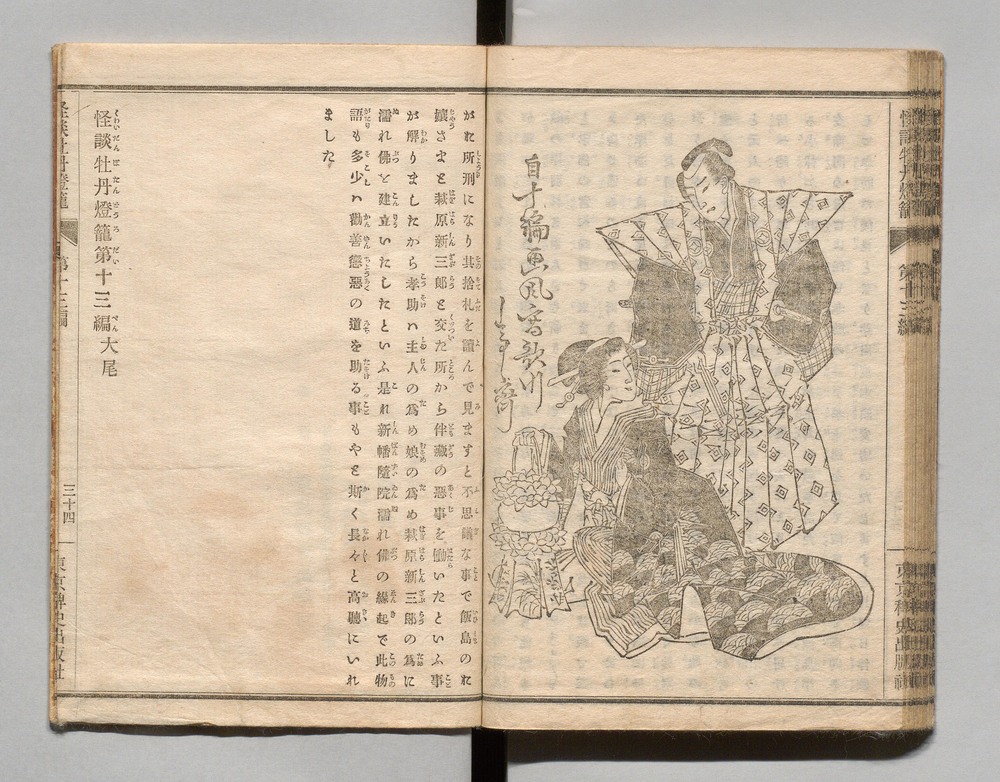 怪談牡丹燈籠
第十三編
東京稗史出版社
自十編画風寄歌川
がれ所刑になり其捨札を讀んで見ますと不思議な事で飯島のれ
嬢さまと萩原新三郎と交た所から伴藏の惡事を働いたといふ事
が解りましたから孝助ハ主人の爲め娘の爲め萩原新三郎の爲に
濡れ佛を建立いたしたといふ是れ新幡隨院濡れ佛の緣起で此物
語も多少ハ勸善懲惡の道を助る事もやと斯く長々と高聽にいれ
ました
怪談牡丹燈籠第十三編大尾
怪談牡丹燈籠
第十三編
三十四
東京稗史出版社